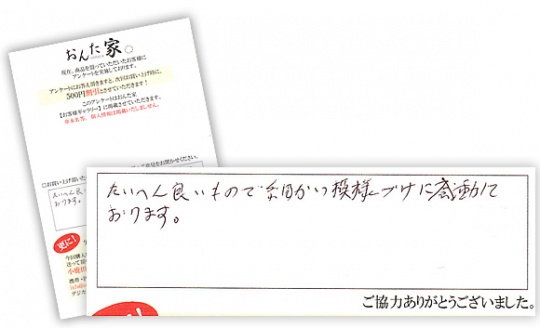 おんた家。
現在、商品を買っていただいたお客様に
アンケートを実施しております。
アンケートにお答え頂きますと、次回お買い上げ時に、
500円割引とさせていただきます！
このアンケートはおんた家
【お客様ギャラリー】に掲載させていただきます。
※本名等、個人情報は掲載いたしません。
たいへん良い
おります。
更に！
たいへん良いもので細かい模様づけに感動して
おります。
ご協力ありがとうございました。